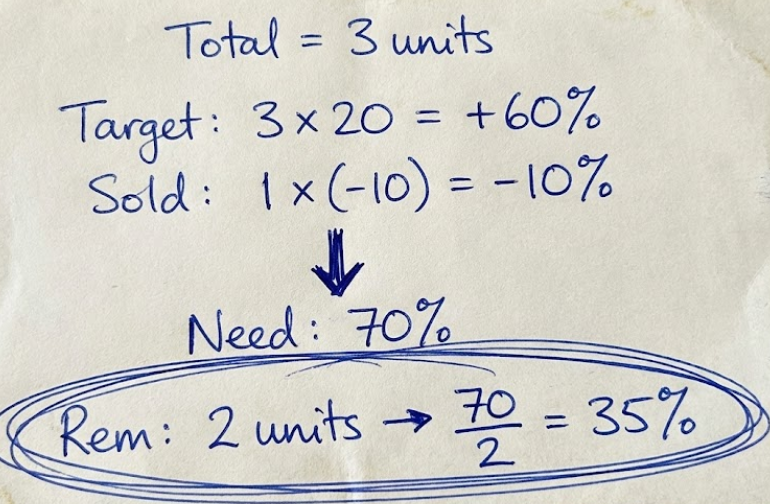 Total = 3 units
Target: 3 × 20 = +60%
Sold: 1 × (-10) = -10%
↓
Need: 70%
Rem: 2 units → 70/2 = 35%